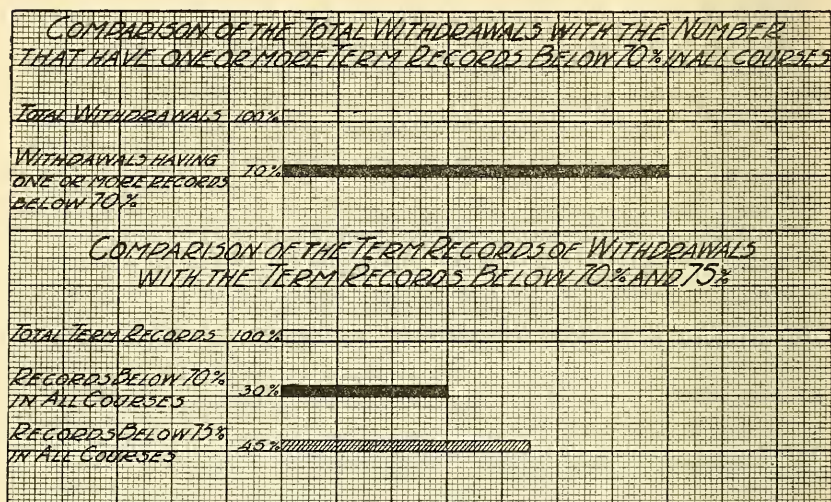 COMPARISON OF THE TOTAL WITHDRAWALS WITH THE NUMBER
THAT HAVE ONE OR MORE TERM RECORDS BELOW 70% IN ALL COURSES
TOTAL WITHDRAWALS 100%
WITHDAWALS HAVING
ONE OR MORE RECORDS
BELOW 70%
70%
COMPARISON OF THE TERM RECORDS OF WITHDRAWALS
WITH THE TERM RECORDS BELOW 70% AND 75%
TOTAL TERM RECORDS 100%
RECORDS BELOW 70%
IN ALL COURSES
30%
RECORDS BELOW 75%
IN ALL COURSES
45%